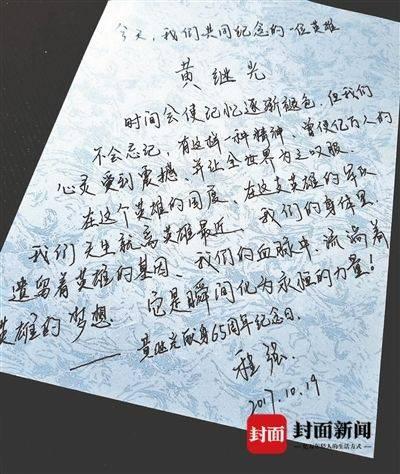 今天，我们共同纪念的一位英雄
黄继光
时间会使记忆逐渐褪色，但我们
不会忘记，有这样一种精神，曾使亿万人的
心灵受到震撼，并让全世界为之叹服。
在这个英雄的国度，在这支英雄的军队
我们天生就离英雄最近，我们的身体里
遗留着英雄的基因，我们的血脉中，流淌着
英雄的梦想。它是瞬间化为永恒的力量！
——黄继光献身65周年纪念日。
程强
2017.10.19
封面 封面新闻
亿万年轻人的生活方式